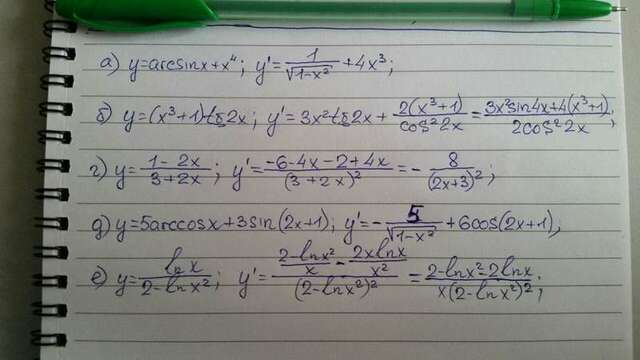 а) y=arcsinx+x⁴; y'=1/√(1-x²)+4x³;
б) y=(x³+1)tg2x; y'=3x²tg2x+2(x³+1)/cos²2x=(3x²sin4x+4(x³+1))/2cos²2x;
г) y=(1-2x)/(3+2x); y'=(-6-4x-2+4x)/(3+2x)²=-8/(2x+3)²;
д) y=5arccosx+3sin(2x+1); y'=-5/√(1-x²)+6cos(2x+1);
е) y=lnx/(2-lnx²); y'=((2-lnx²)/x-2xlnx/x²)/(2-lnx²)²=(2-lnx²-2lnx)/x(2-lnx²)²;